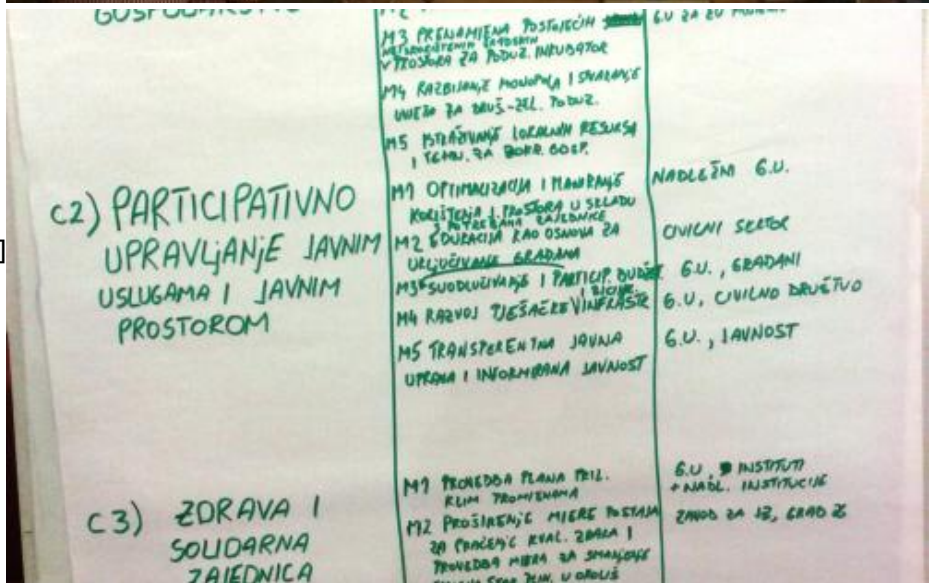 GOSPODARSTVO
M2
M3 PRENAMJENA POSTOJEĆIH
PROSTORA ZA PODUZ. INKUBATOR
G.U. ZA
M4 RAZBIJANJE MONOPOLA I STVARANJE
UVJETA ZA DRUŠ.-ZEL. PODUZ.
M5 ISTRAŽIVANJE LOKALNIH RESURSA
I TEHN. ZA GOSP.
C2) PARTICIPATIVNO
UPRAVLJANJE JAVNIM
USLUGAMA I JAVNIM
PROSTOROM
M1 OPTIMALIZACIJA I PLANIRANJE
KORIŠTENJA J. PROSTORA U SKLADU
S POTREBAMA ZAJEDNICE
M2 EDUKACIJA KAO OSNOVA ZA
UKLJUČIVANJE GRAĐANA
M3 SUODLUČIVANJE I PARTICIP. BUDŽET
M4 RAZVOJ PJEŠAČKE I BICIKL. INFRASTR.
M5 TRANSPERENTNA JAVNA
UPRAVA I INFORMIRANA JAVNOST
NADLEŽNI G.U.
CIVILNI SEKTOR
G.U., GRAĐANI
G.U, CIVILNO DRUŠTVO
G.U., JAVNOST
C3) ZDRAVA I
SOLIDARNA
ZAJEDNICA
M1 PROVEDBA PLANA PRIL.
KLIM PROMJENAMA
M2 PROŠIRENJE MJERE POSTAJA
ZA PRAĆENJE KVAL. ZRAKA I
PROVEDBA MJERA ZA SMANJENJE
U OKOLIŠ
G.U, INSTITUTI
+ NADL. INSTITUCIJE
ZAVOD ZA JZ, GRAD ZG